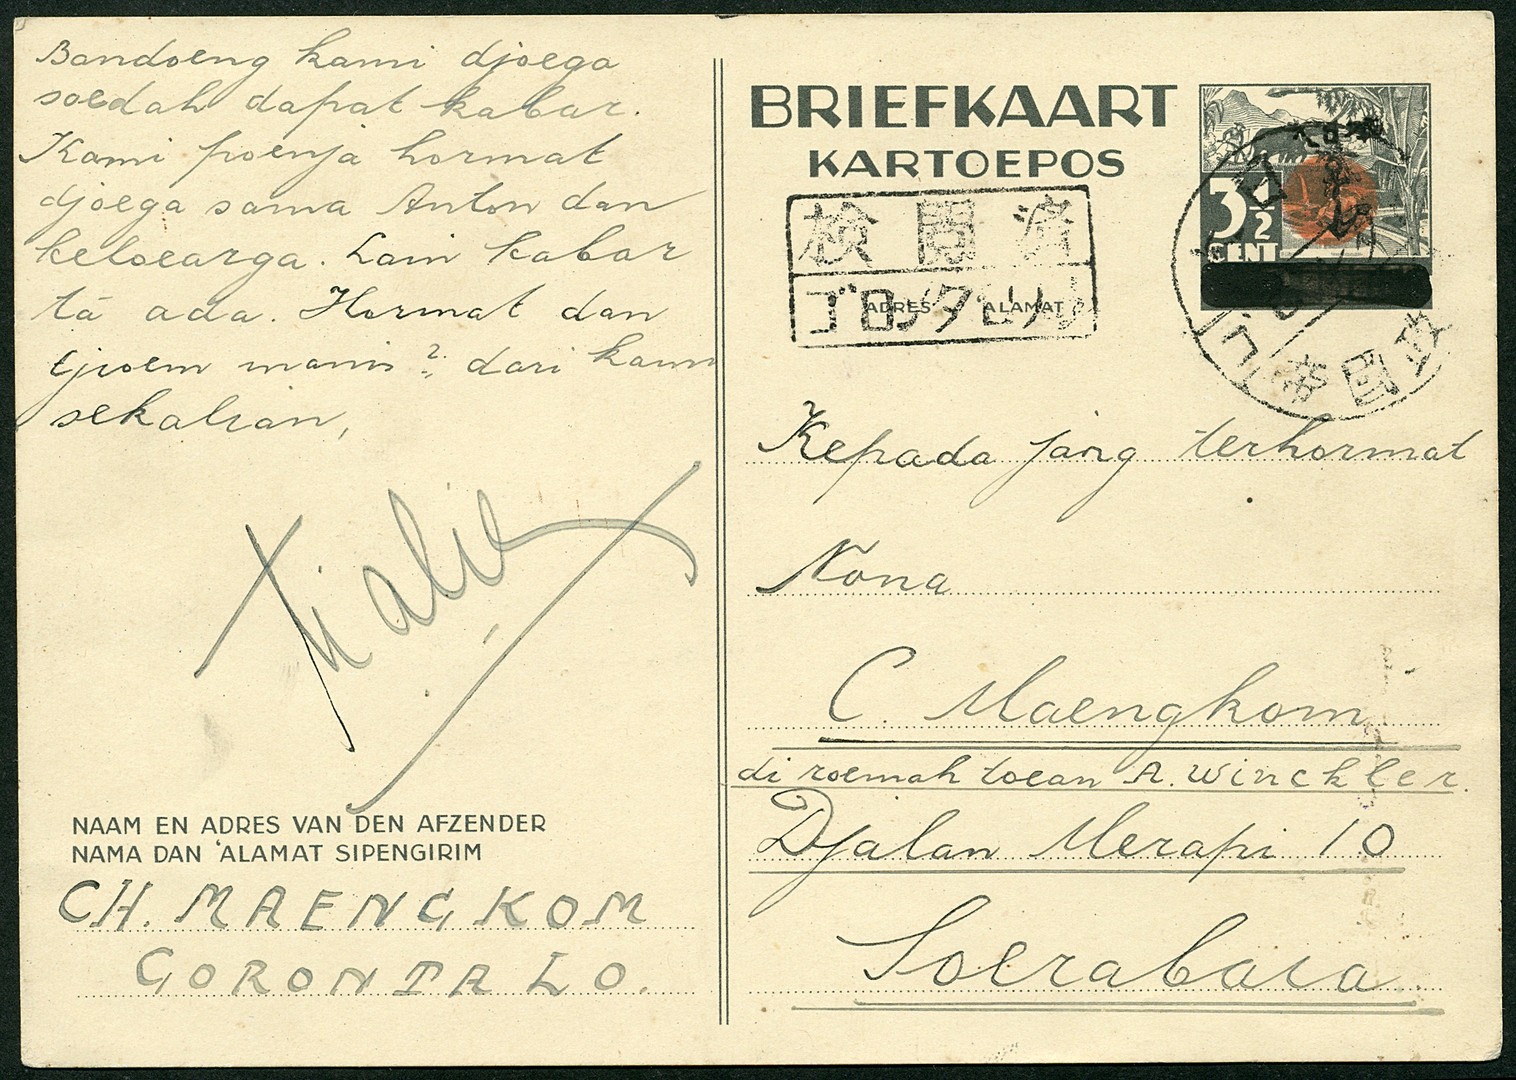 Bandoeng kami djoega
soedah dapat kabar.
Kami poenja hormat
djoega sama Anton dan
keloearga. Lain kabar
ta ada. Hormat dan
tjioem manis? dari kami
sekalian,
NAAM EN ADRES VAN DEN AFZENDER
NAMA DAN 'ALAMAT SIPENGIRIM
CH. MAENGKOM
GORONTALO.
BRIEFKAART
KARTOEPOS
3½
CENT
検閲済
ゴロンタロ
ADRES 'ALAMAT
Kepada jang terhormat
Nona
C. Maengkom
di roemah toean A. Winckler.
Djalan Merapi 10
Soerabaia